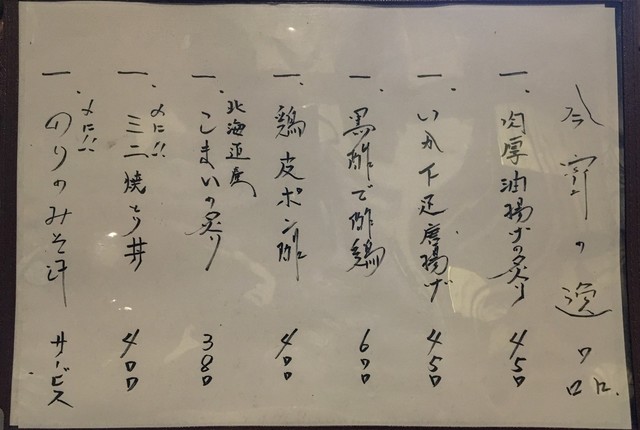 今宵の逸品
一、肉厚油揚げの炙り 450
一、いか下足唐揚げ 450
一、黒酢で酢鶏 600
一、鶏皮ポン酢 400
一、北海道産 こまいの炙り 380
一、〆に!! ミニ焼とり丼 400
一、〆に!! のりのみそ汁 サービス